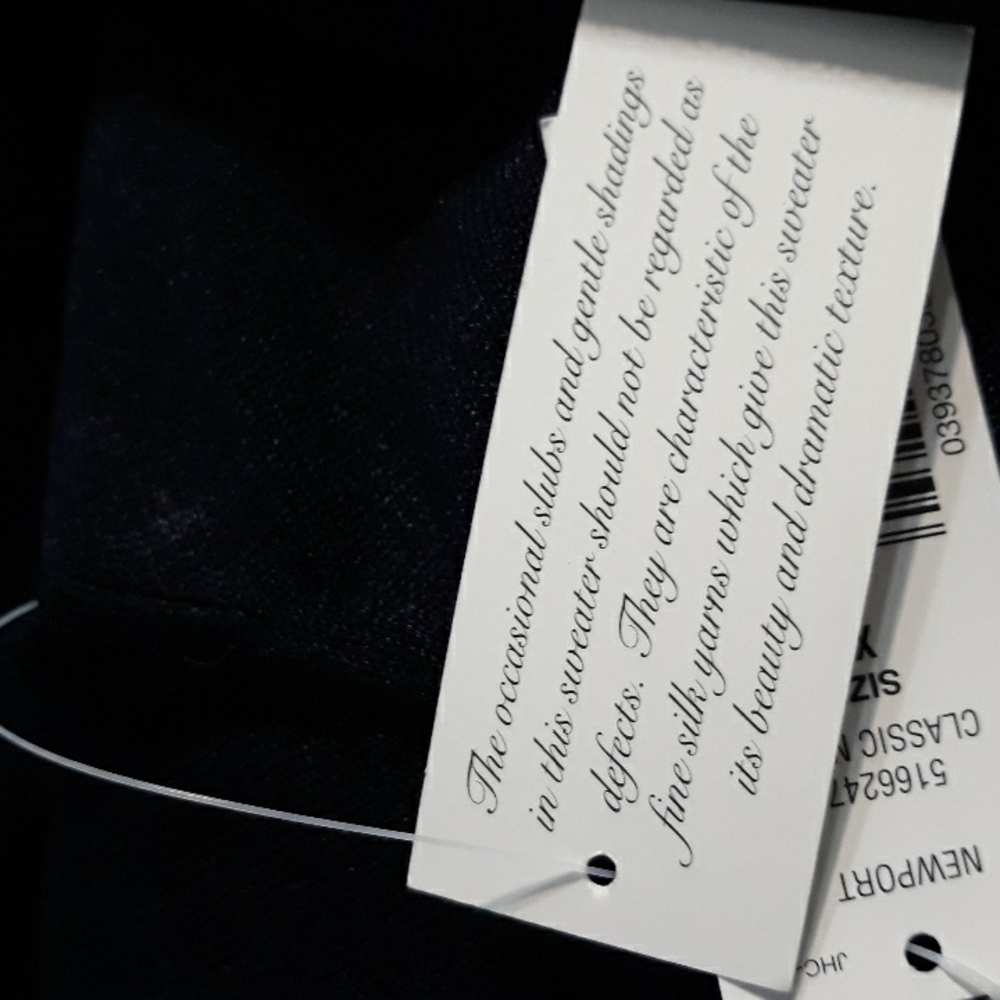 The occasional slubs and gentle shadings
in this sweater should not be regarded as
defects. They are characteristic of the
fine silk yarns which give this sweater
its beauty and dramatic texture.
NEWPORT
5166247
CLASSIC